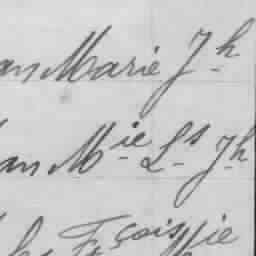 an Marie Jh
an Mie Ls Jh
Fçois Mie